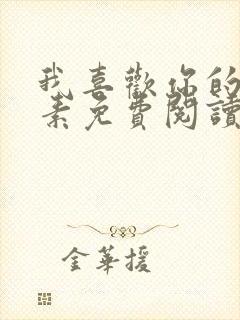 我喜歡你的
素免費閱讀
金華援